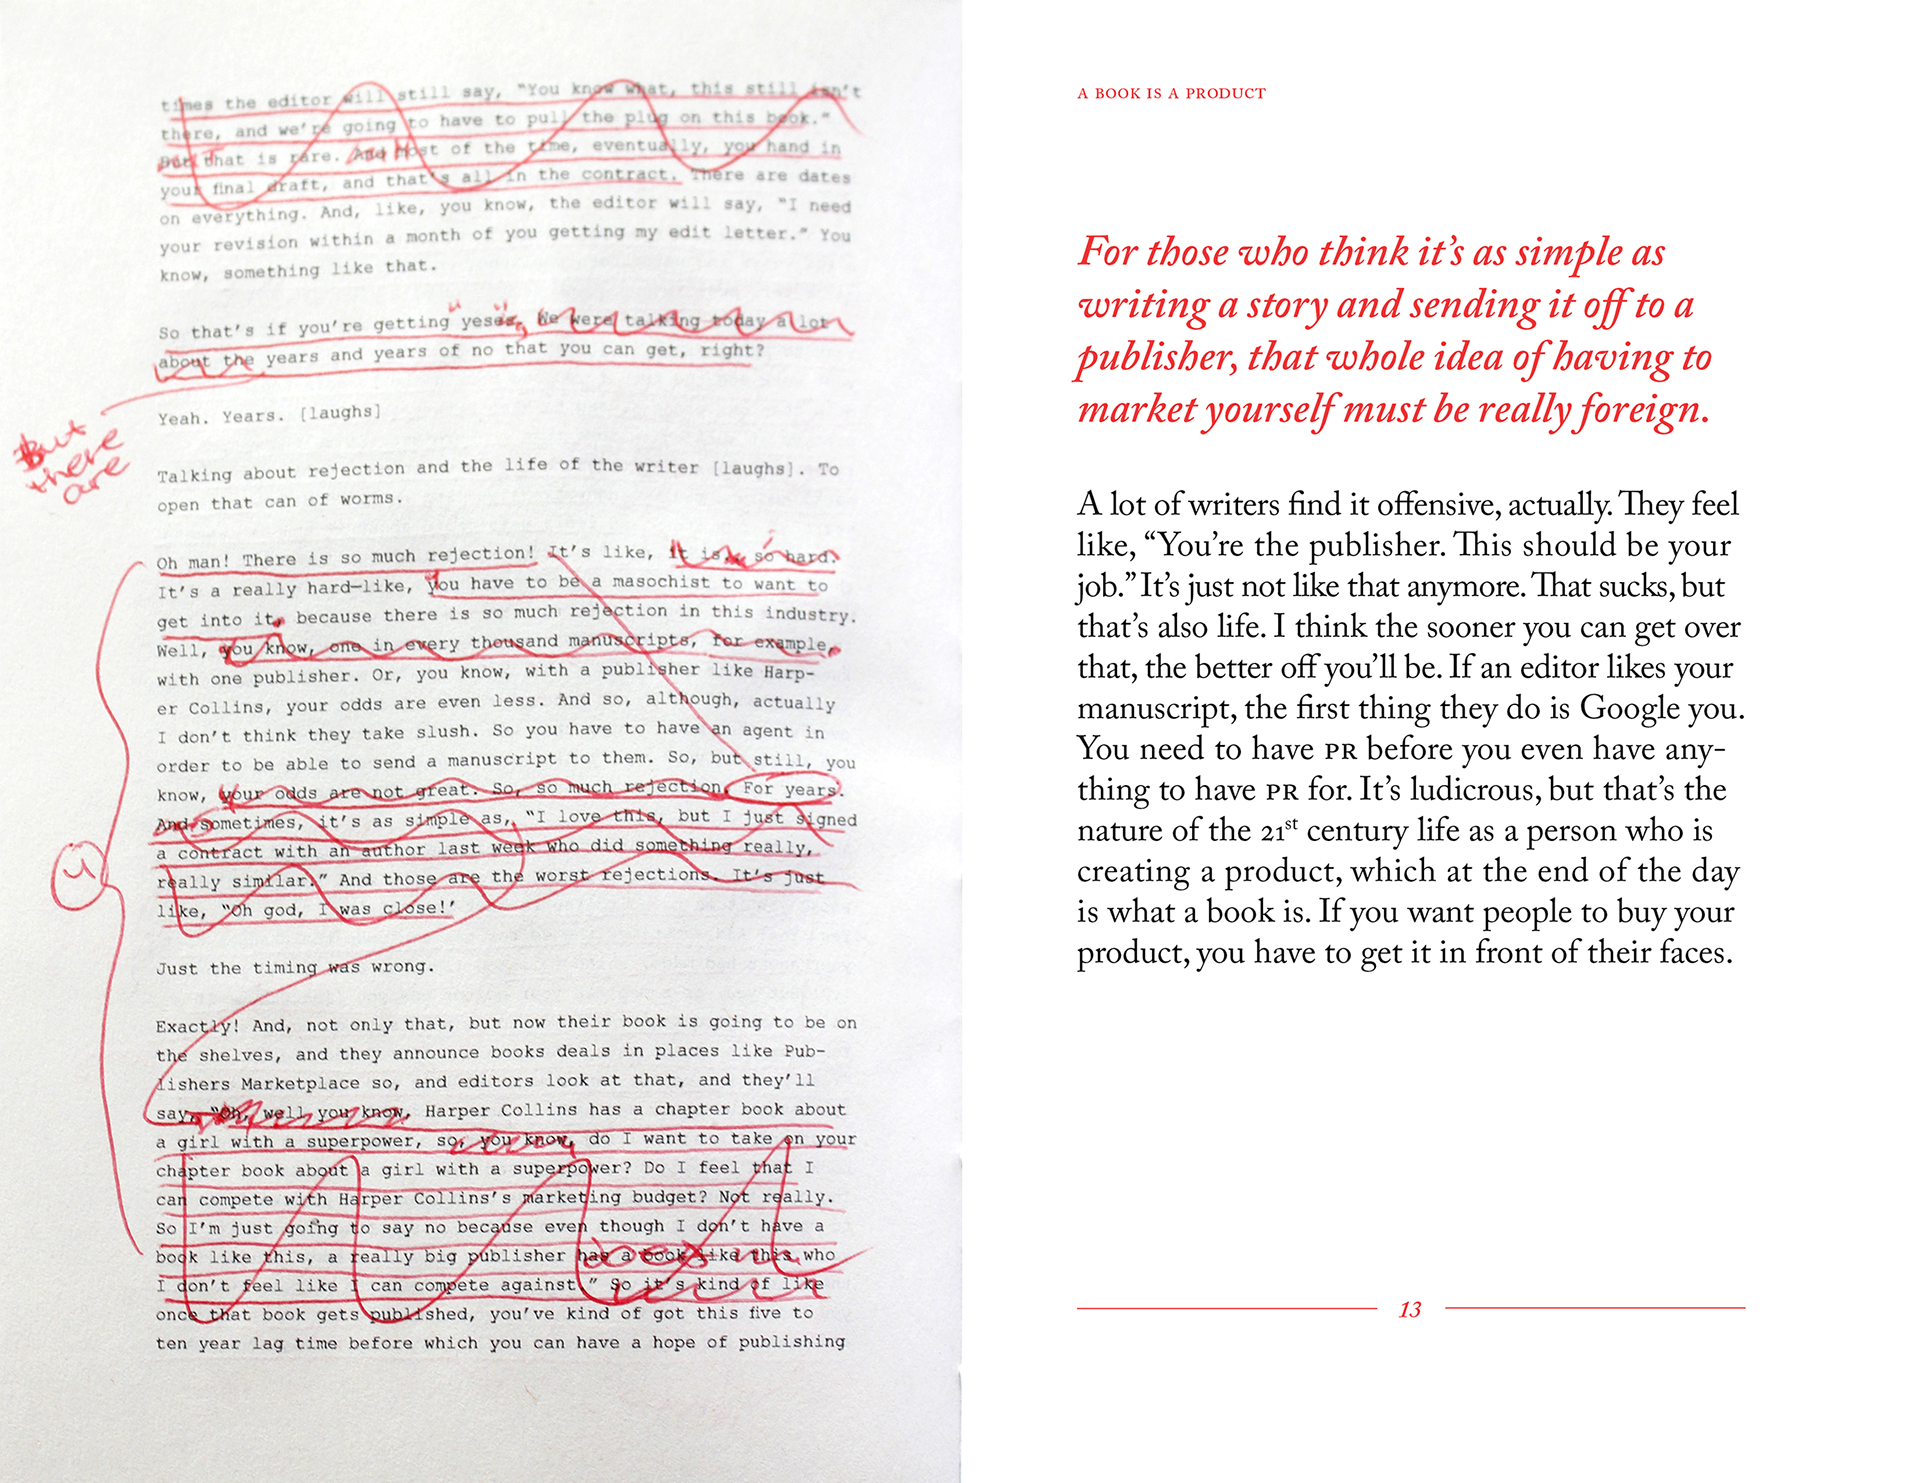 times the editor will still say, "You know what, this still isn't
there, and we're going to have to pull the plug on this book."
But that is rare. And most of the time, eventually, you hand in
your final draft, and that's all in the contract. There are dates
on everything. And, like, you know, the editor will say, "I need
your revision within a month of you getting my edit letter." You
know, something like that.
So that's if you're getting "yeses", We were talking today a lot
about the years and years of no that you can get, right?
Yeah. Years. [laughs]
But
there
are
Talking about rejection and the life of the writer [laughs]. To
open that can of worms.
Oh man! There is so much rejection! It's like, it is so hard.
It's a really hard—like, you have to be a masochist to want to
get into it, because there is so much rejection in this industry.
Well, you know, one in every thousand manuscripts, for example,
with one publisher. Or, you know, with a publisher like Harp-
er Collins, your odds are even less. And so, although, actually
I don't think they take slush. So you have to have an agent in
order to be able to send a manuscript to them. So, but still, you
know, your odds are not great. So, so much rejection. For years.
And sometimes, it's as simple as, "I love this, but I just signed
a contract with an author last week who did something really,
really similar." And those are the worst rejections. It's just
like, "Oh god, I was close!'
Just the timing was wrong.
Exactly! And, not only that, but now their book is going to be on
the shelves, and they announce books deals in places like Pub-
lishers Marketplace so, and editors look at that, and they'll
say, "Oh, well you know, Harper Collins has a chapter book about
a girl with a superpower, so, you know, do I want to take on your
chapter book about a girl with a superpower? Do I feel that I
can compete with Harper Collins's marketing budget? Not really.
So I'm just going to say no because even though I don't have a
book like this, a really big publisher has a book like this who
I don't feel like I can compete against." So it's kind of like
once that book gets published, you've kind of got this five to
ten year lag time before which you can have a hope of publishing
A BOOK IS A PRODUCT
For those who think it's as simple as
writing a story and sending it off to a
publisher, that whole idea of having to
market yourself must be really foreign.
A lot of writers find it offensive, actually. They feel
like, "You're the publisher. This should be your
job." It's just not like that anymore. That sucks, but
that's also life. I think the sooner you can get over
that, the better off you'll be. If an editor likes your
manuscript, the first thing they do is Google you.
You need to have PR before you even have any-
thing to have PR for. It's ludicrous, but that's the
nature of the 21st century life as a person who is
creating a product, which at the end of the day
is what a book is. If you want people to buy your
product, you have to get it in front of their faces.
13